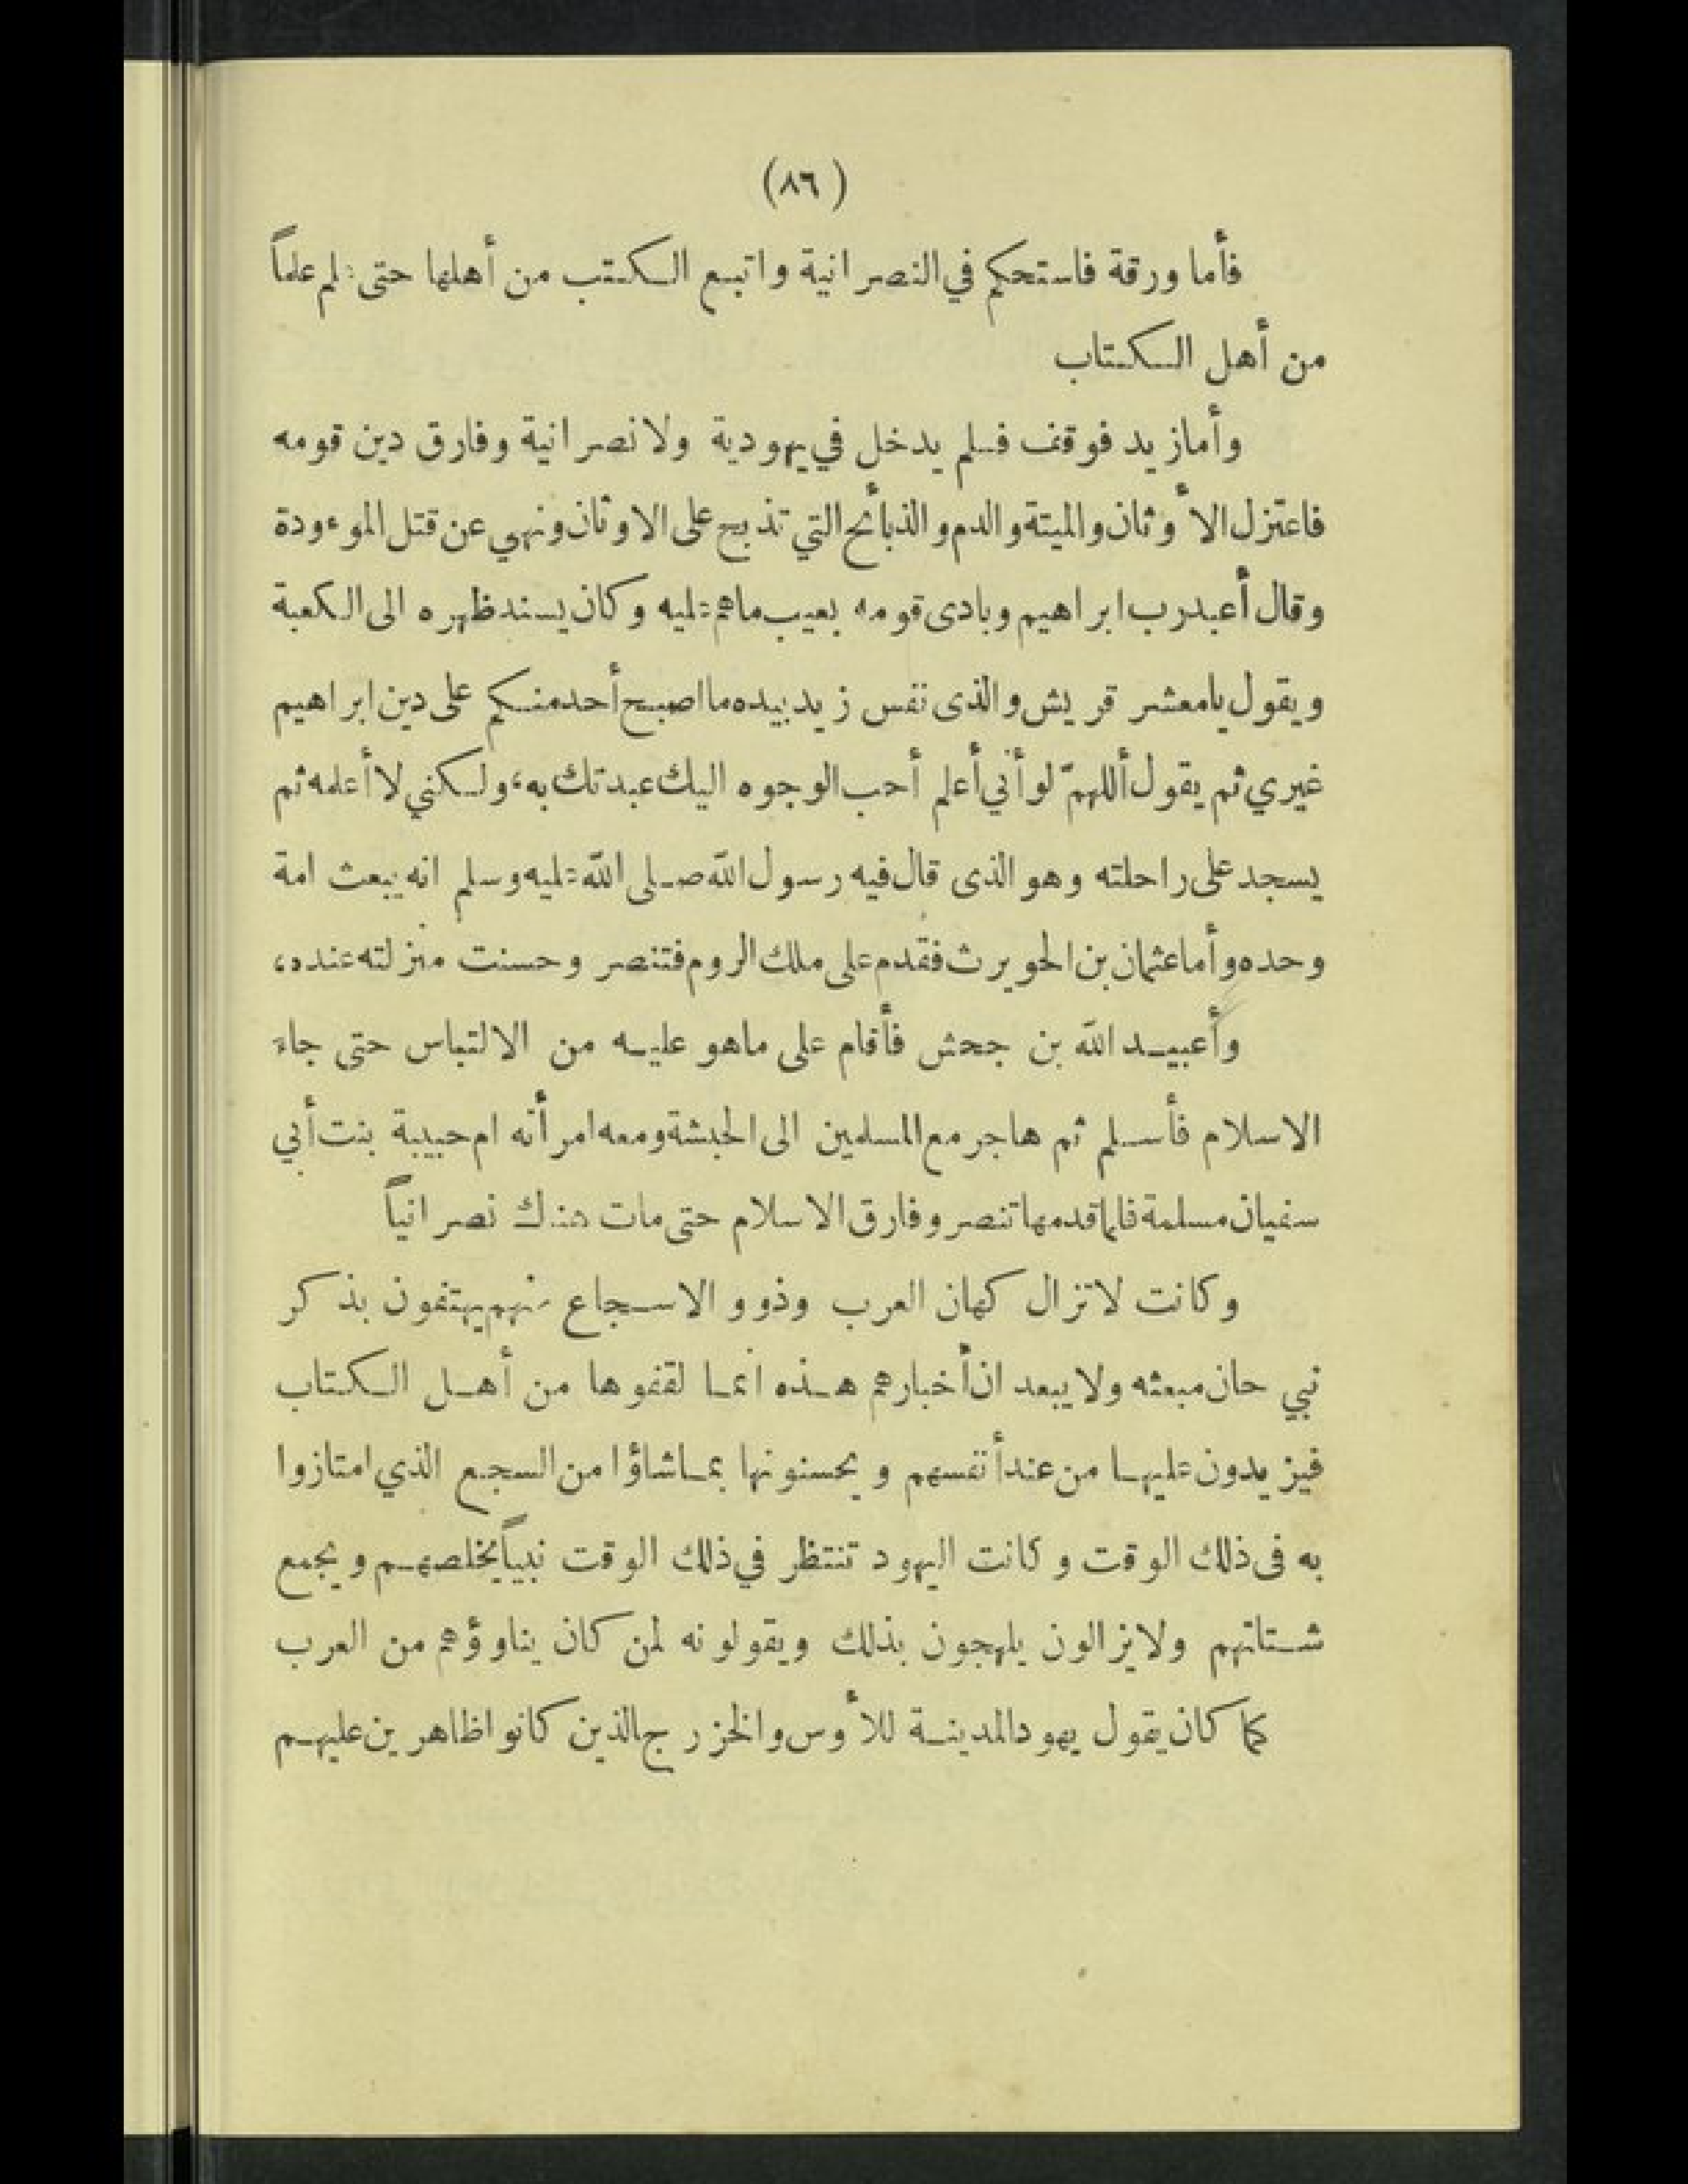 (٨٦)
فأما ورقة فاستحكم في النصرانية واتبع الكتب من أهلها حتى علم علماً
من أهل الكتاب
وأما زيد فوقف فلم يدخل في يهودية ولا نصرانية وفارق دين قومه
فاعتزل الأوثان والميتة والدم والذبأئح التي تذبح على الاوثان ونهي عن قتل الموءودة
وقال أعبد رب ابراهيم وبادى قومه بعيب ماهم عليه وكان يسند ظهره الى الكعبة
ويقول يامعشر قريش والذى نفس زيد بيده ما اصبح أحد منكم على دين ابراهيم
غيري ثم يقول أللهمّ لو أني أعلم أحب الوجوه اليك عبدتك به، ولكني لا أعلمه ثم
يسجد على راحلته وهو الذى قال فيه رسول الله صلى الله عليه وسلم انه يبعث امة
وحده وأما عثمان بن الحويرث فقدم على ملك الروم فتنصر وحسنت منزلته عنده،
وأعبيد الله بن جحش فأقام على ماهو عليه من الالتباس حتى جاء
الاسلام فأسلم ثم هاجر مع المسلمين الى الحبشة ومعه امرأته ام حبيبة بنت أبي
سفيان مسلمة فلما قدمها تنصر وفارق الاسلام حتى مات هنك نصرانياً
وكانت لاتزال كهان العرب وذوو الاسجاع منهم يهتفون بذكر
نبي حان مبعثه ولا يبعد ان أخبارهم هذه انما لقفوها من أهل الكتاب
فيزيدون عليها من عند أنفسهم ويحسنونها بما شاؤا من السجع الذي امتازوا
به فى ذلك الوقت وكانت اليهود تنتظر في ذلك الوقت نبياً يخلصهم ويجمع
شتاتهم ولايزالون يلهجون بذلك ويقولونه لمن كان يناوؤهم من العرب
كما كان يقول يهود المدينة للأوس والخزرج الذين كانوا ظاهرين عليهم